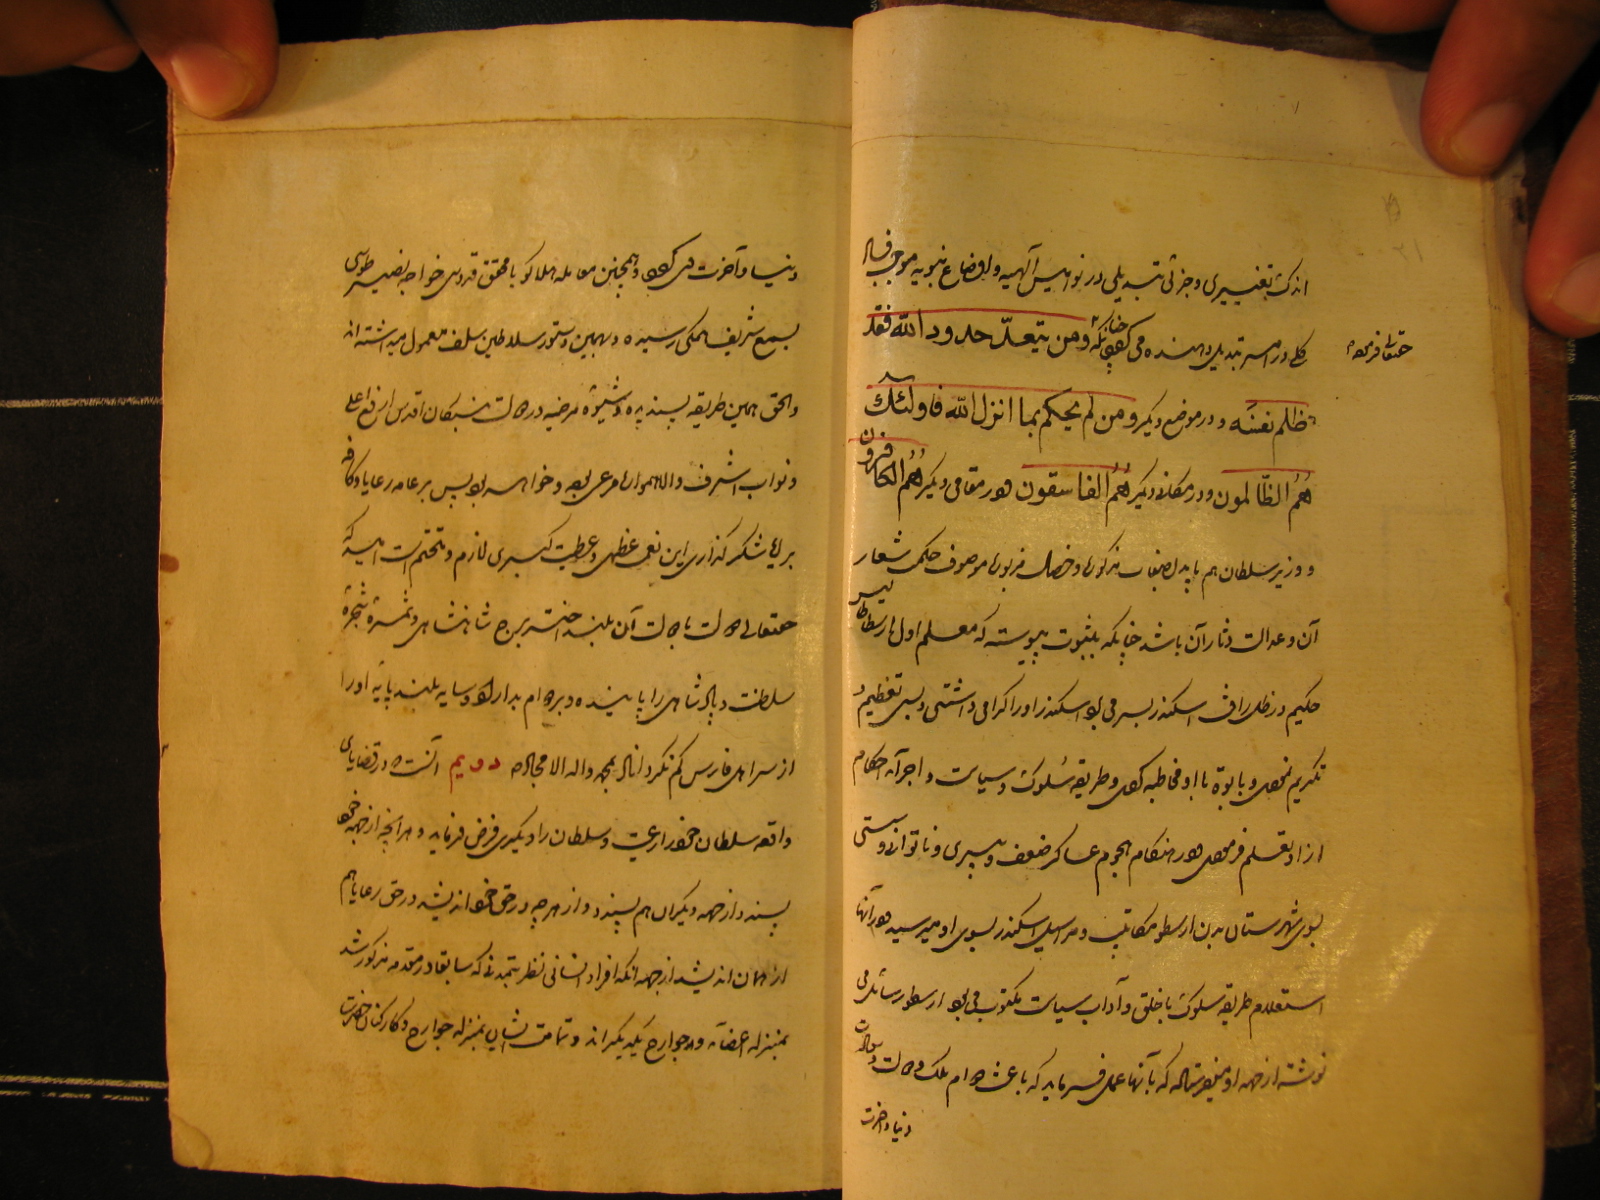 اندک تغییری و جزئی تبدیلی در نوامیس آلهیه و اوضاع نبویه موجب فساد
کلی در امر تبدیل دهنده می چنانکه و من یتعدّ حدود الله فقد
حقتعالی فرموده
ظلم نفسه و در موضع دیگر و من لم یحکم بما انزل الله فاولئک
هُمُ الظّالمون و در مکان دیگر هُمُ الفاسقون و در مقامی دیگر هُمُ الکافرون
و وزیر سلطان هم باید بصفات مذکوره و خصال مزبوره موصوف حکمت شعار
آن و عدالت دثار آن باشد چنانکه بثبوت پیوسته که معلم اول ارسطاطالیس
حکیم وزیر اسکندر بسر می اسکندر او را گرامی داشتی و بسی تعظیم و
تکریم نمودی و با او مخاطبه کردی و طریقه سُلوک و سیاست و اجرآء احکام
از او تعلم فرمودی و در هنکام هجوم عساکر ضعف و پیری و ناتوانی و سستی
بسوی شهرستان بدن ارسطو مکاتیب و مراسیل اسکندر بسوی او میرسید و در آنها
استعلام طریقه سلوک با خلق و آداب سیاست مکتوب می ارسطو رسائلی
نوشته از جهة او میفرستاد که بآنها عمل فرماید که باعث دوام ملک و دولت و
دنیا و آخرت
دنیا و آخرت می و همچنین معامله هلاکو با محقق قدوسی خواجه نصیر طوسی
بسمع شریف همکی رسیده و همین دستور سلاطین سلف معمول میداشته اند
والحق همین طریقه پسندیده و شیوه مرضیه در دولت بندکان اقدس ارفع اعلی
و نواب اشرف والا هموار مرعی و خواهد پس بر عامه رعایا و کافه
برایا شکر کذاری این نعمت عظمی و عطیه کبری لازم و متحتم است امید که
حقتعالی دولت آن بلند اختر برج شاهنشاهی و ثمره شجره
سلطنت و پادشاهی را پاینده و بر دوام بدارد و سایه بلند پایه او را
از سر اهل فارس کم نکرداناد بمحمد واله الامجاد دویم آنست که در قضایای
واقعه سلطان خود را رعیت و سلطان را دیگری فرض فرماید و هر انچه از جهة خود
پسندد از جهة دیگران هم پسندد و از هر چه در حق خود اندیشد در حق رعایا هم
از همان اندیشد از جهة انکه افراد انسانی نظر بتمدنی که سابقا در مقدمه مذکور شد
بمنزله اعضآء و جوارح یکدیگراند و تمامت ایشان بمنزله جوارح و کارکنان حضرت